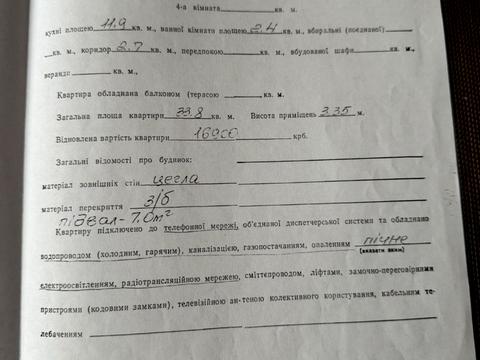 4-а кімната ________ кв. м.
кухні площею 11.9 кв. м., ванної кімната площею 2.4 кв. м., вбиральні (поєднаної)
____ кв. м., коридор 2.7 кв. м., передпокою ________ кв. м., вбудованої шафи ______ кв. м.,
веранди ______ кв. м.,
Квартира обладнана балконом (терасою ______ кв. м.
Загальна площа квартири 33.8 кв. м. Висота приміщень 3.35 м.
Відновлена вартість квартири 16900 крб.
Загальні відомості про будинок: ________
матеріал зовнішніх стін цегла
матеріал перекриття з/б
підвал - 7.0 м²
Квартиру підключено до телефонної мережі, об'єднаної диспетчерської системи та обладнано
водопроводом (холодним, гарячим), каналізацією, газопостачанням, опаленням пічне
(вказати яким)
електроосвітленням, радіотрансляційною мережею, сміттєпроводом, ліфтами, замочно-переговірними
пристроями (кодовими замками), телевізійною ан-теною колективного користування, кабельним те-
лебаченням ________